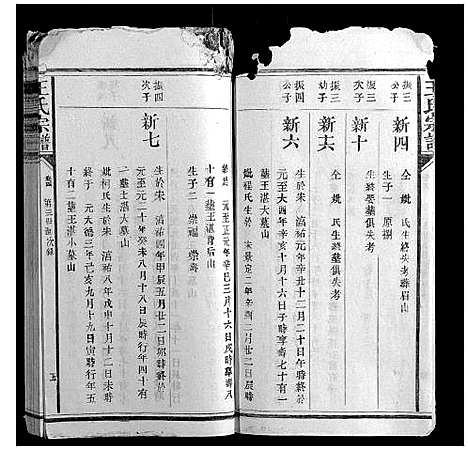 王氏宗譜
振三
公子
新四
仝 妣 氏生終失考葬眉山
生子一 原捌
振三
次子
新十
生終塟墓俱失考
振三
幼子
新十六
仝 妣 氏生終墓俱失考
振四
公子
新六
生於宋 淳祐元年辛丑十二月二十日午時終於
元至大四年辛亥十月十六日子時享壽七十有一
塟王湛大墓山
妣程氏生於 宋景定二年辛酉二月廿二日辰時
終於 元至正元年辛巳三月十六日戌時享壽八
十有一塟王湛背后山
生子二 崇福 崇壽
振四
次子
新七
生於宋 淳祐四年甲辰五月廿二日卯時終於
元至元二十年癸未八月十八日辰時行年四十有
塟王湛大墓山
妣柯氏生於 淳祐八年戊申十月十二日未時
終於 元大德三年己亥九月十九日寅時行年五
十有二塟王湛小墓山
王氏宗譜
第三世
次錄
五